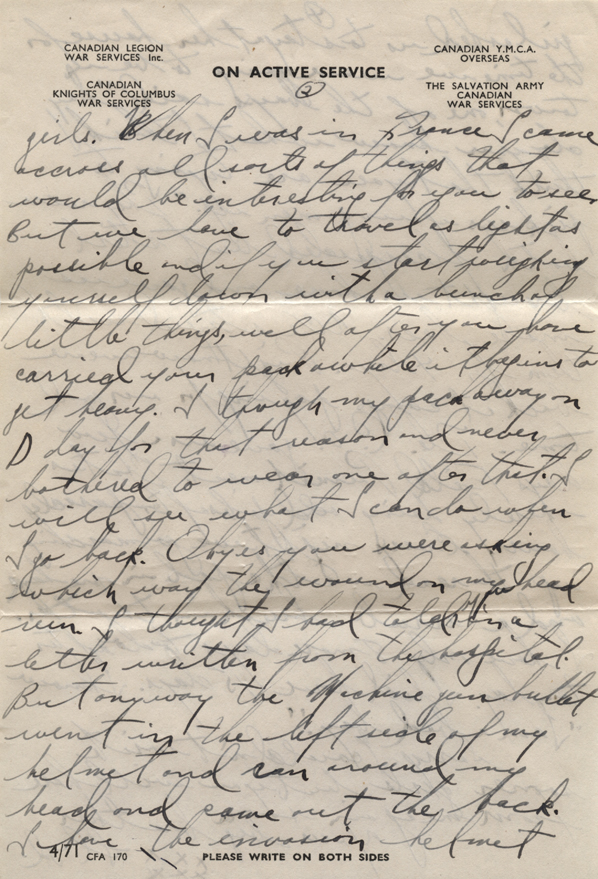 CANADIAN LEGION
WAR SERVICES Inc.
CANADIAN
KNIGHTS OF COLUMBUS
WAR SERVICES
ON ACTIVE SERVICE
2
CANADIAN Y.M.C.A.
OVERSEAS
THE SALVATION ARMY
CANADIAN
WAR SERVICES
girls. When I was in France I came
accross all sorts of things that
would be interesting for you to see.
But we have to travel as light as
possible and if you start weighing
yourself down with a bunch of
little things, well after you have
carried your pack awhile it begins to
get heavy. I though my pack away on
D day for that reason and never
bothered to wear one after that. I
will see what I can do when
I go back. Oh yes you were asking
which way the wound on my head
run. I thought I had told you in a
letter written from the hospital.
But anyway the Machine gun bullet
went in the left side of my
helmet and ran around my
head and came out the back.
I have the invasion helmet
4/71 CFA 170
PLEASE WRITE ON BOTH SIDES